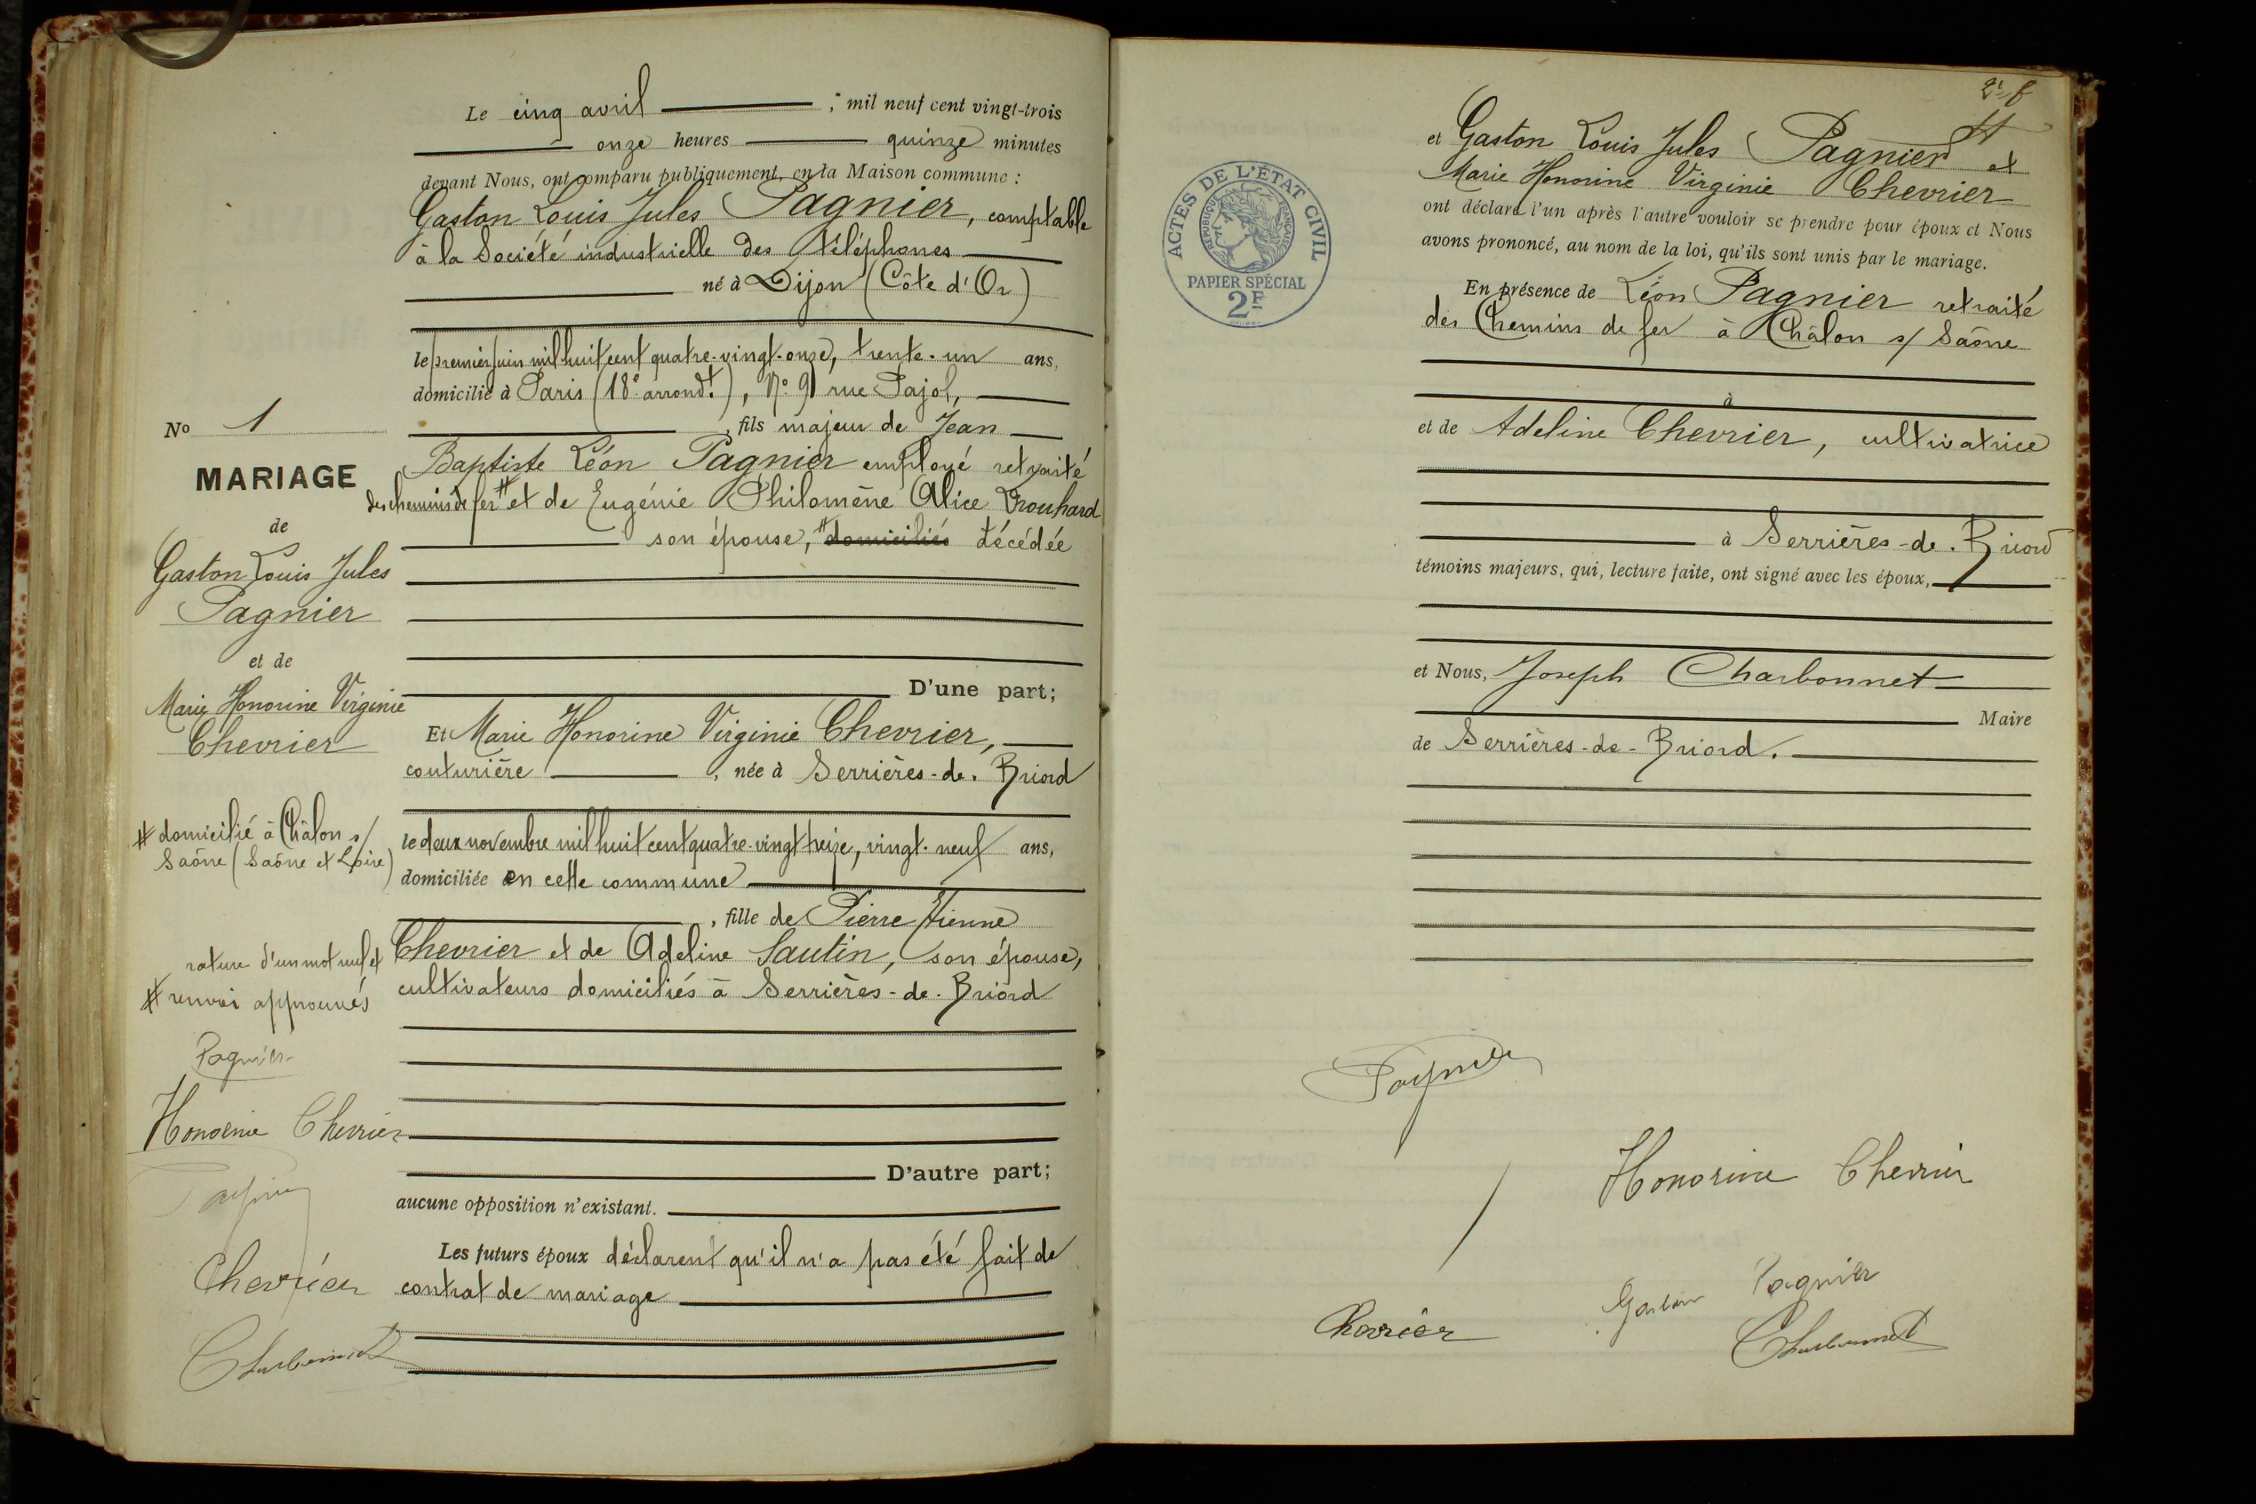 Le cinq avril ; mil neuf cent vingt-trois
onze heures quinze minutes
devant Nous, ont comparu publiquement, en la Maison commune :
Gaston Louis Jules Pagnier, comptable
à la Société industrielle des téléphones
né à Dijon (Côte d'Or)
le premier juin mil huit cent quatre-vingt-onze, trente-un ans,
domicilié à Paris (18e arrondt.), No. 91 rue Pajol,
, fils majeur de Jean
Baptiste Léon Pagnier employé retraité
des chemins de fer # et de Eugénie Philomène Alice Drouhard
son épouse, # domiciliés décédée
D'une part;
Et Marie Honorine Virginie Chevrier,
couturière , née à Serrières-de-Briord
le deux novembre mil huit cent quatre-vingt treize, vingt-neuf ans,
domiciliée en cette commune
, fille de Pierre Etienne
Chevrier et de Adeline Sautin, son épouse,
cultivateurs domiciliés à Serrières-de-Briord
D'autre part;
aucune opposition n'existant.
Les futurs époux déclarent qu'il n'a pas été fait de
contrat de mariage
No 1
MARIAGE
de
Gaston Louis Jules
Pagnier
et de
Marie Honorine Virginie
Chevrier
# domicilié à Châlon s/
Saône (Saône et Loire)
rature d'un mot nul et
# renvoi approuvés
Pagnier
Honorine Chevrier
Chevrier
Charbonnet
et Gaston Louis Jules Pagnier et
Marie Honorine Virginie Chevrier
ont déclaré l'un après l'autre vouloir se prendre pour époux et Nous
avons prononcé, au nom de la loi, qu'ils sont unis par le mariage.
En présence de Léon Pagnier retraité
des Chemins de fer à Châlon s/ Saône
à
et de Adeline Chevrier, cultivatrice
à Serrières-de-Briord
témoins majeurs, qui, lecture faite, ont signé avec les époux,
et Nous, Joseph Charbonnet
Maire
de Serrières-de-Briord.
ACTES DE L'ÉTAT CIVIL
RÉPUBLIQUE FRANÇAISE
PAPIER SPÉCIAL
2F
Pagnier
Honorine Chevrier
Gaston Pagnier
Chevrier
Charbonnet